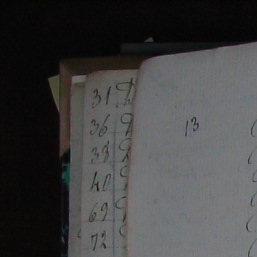 31
36
38
40
69
72
13